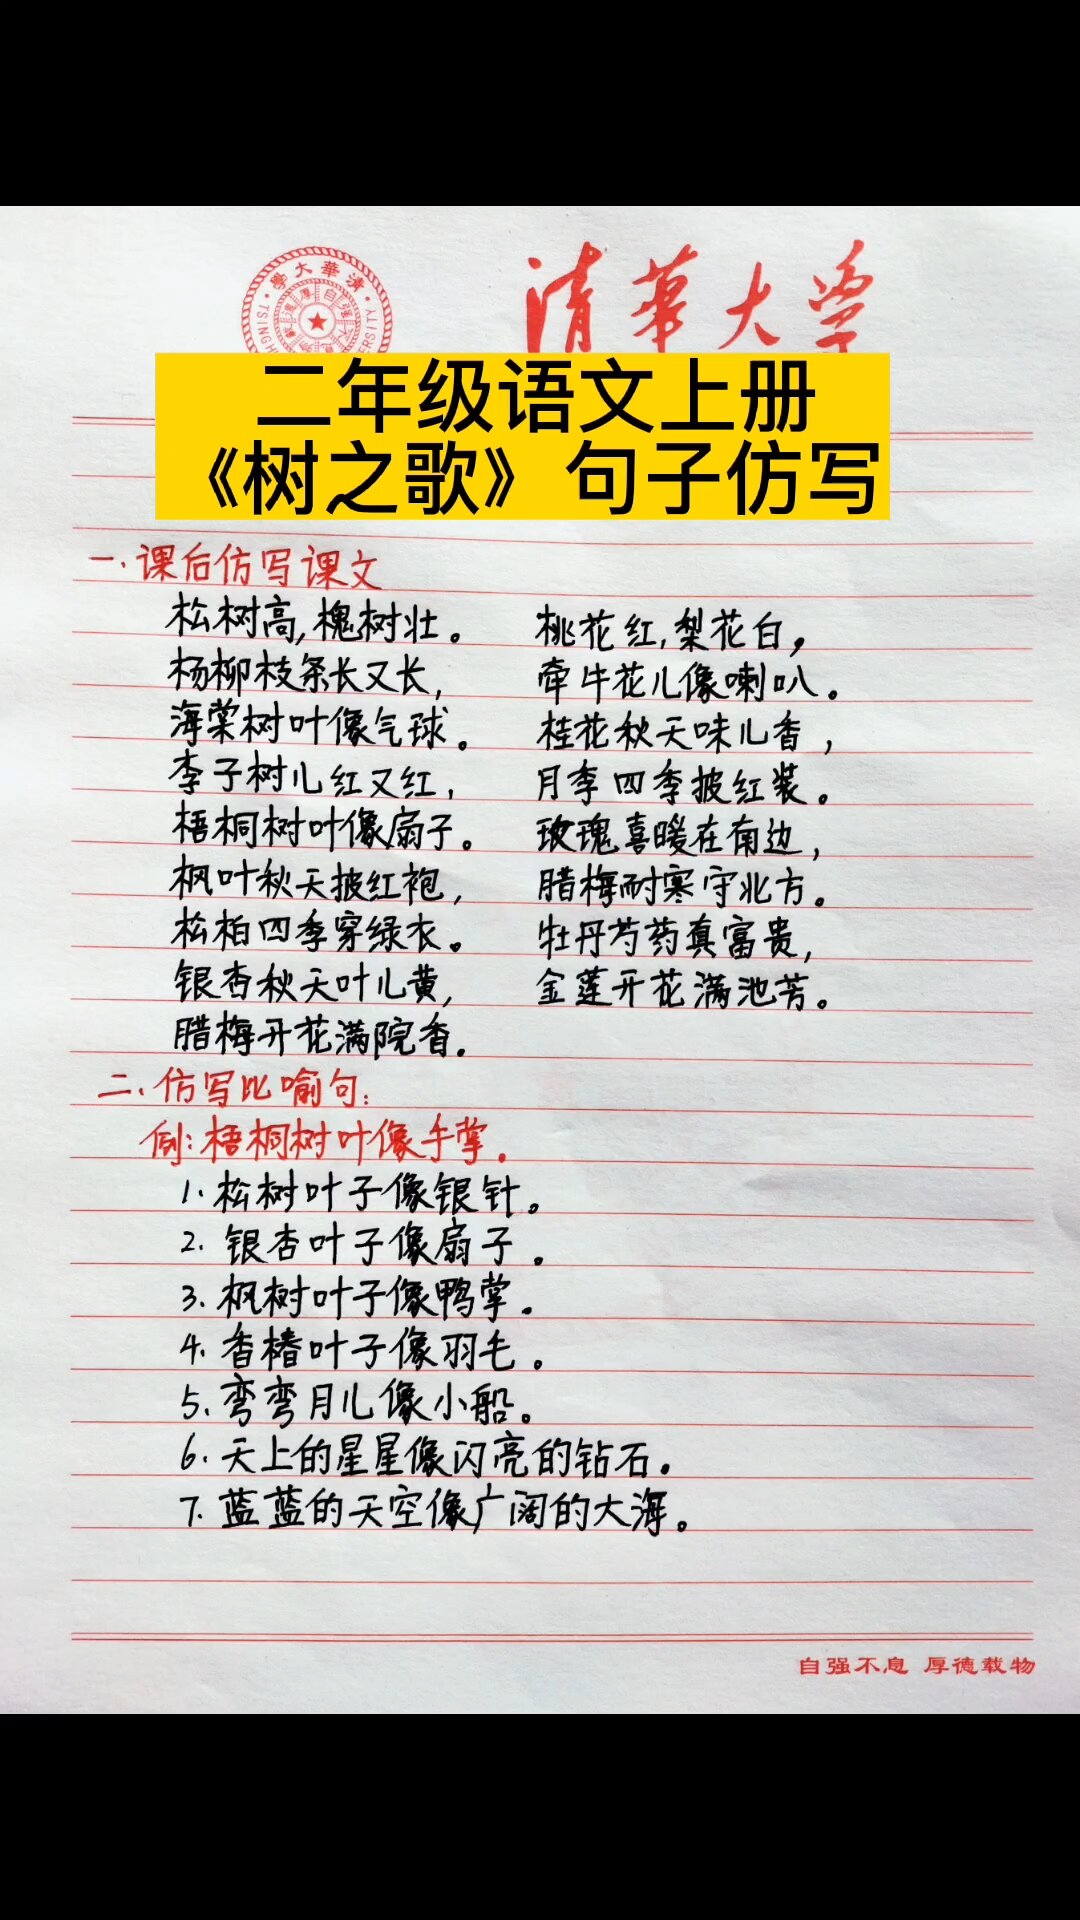 清華大学
二年级语文上册
《树之歌》句子仿写
一.课后仿写课文
松树高,槐树壮。
杨柳枝条长又长,
海棠树叶像气球。
李子树儿红又红,
梧桐树叶像扇子。
枫叶秋天披红袍,
松柏四季穿绿衣。
银杏秋天叶儿黄,
腊梅开花满院香.
桃花红,梨花白,
牵牛花儿像喇叭。
桂花秋天味儿香,
月季四季披红装。
玫瑰喜暖在南边,
腊梅耐寒守北方。
牡丹芍药真富贵,
金莲开花满池芳。
二.仿写比喻句:
例:梧桐树叶像手掌.
1.松树叶子像银针。
2.银杏叶子像扇子.
3.枫树叶子像鸭掌.
4.香椿叶子像羽毛.
5.弯弯月儿像小船。
6.天上的星星像闪亮的钻石.
7.蓝蓝的天空像广阔的大海.
自强不息 厚德载物